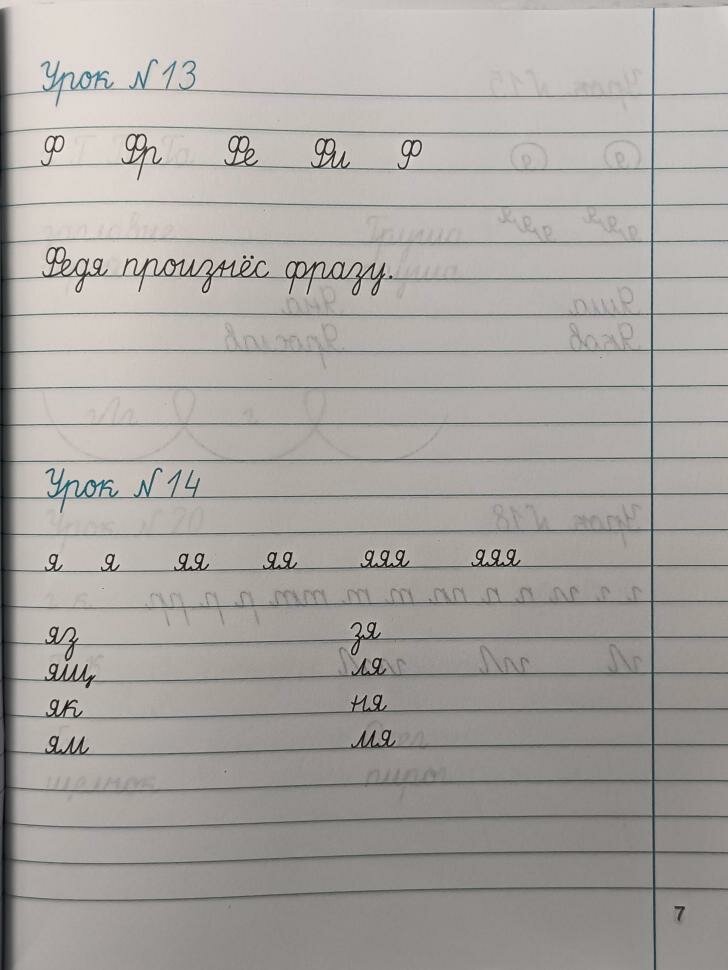 Урок N 13
Ф Фр Фе Фи Ф
Федя произнёс фразу.
Урок N 14
я я яя яя яяя яяя
яз зя
ящ ля
як ня
ям мя
7